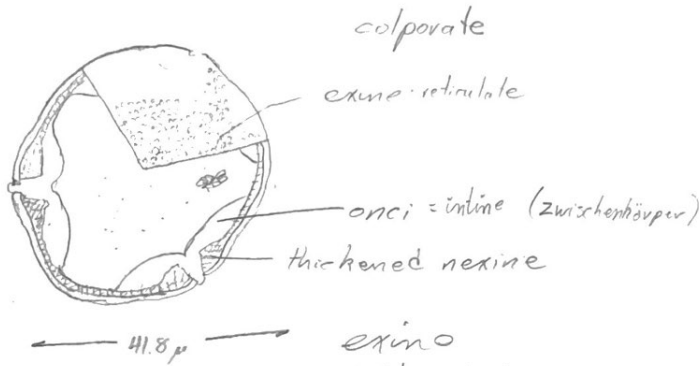 colporate
exine-reticulate
onci = intine (Zwischenkörper)
thickened nexine
41.8 µ
exino